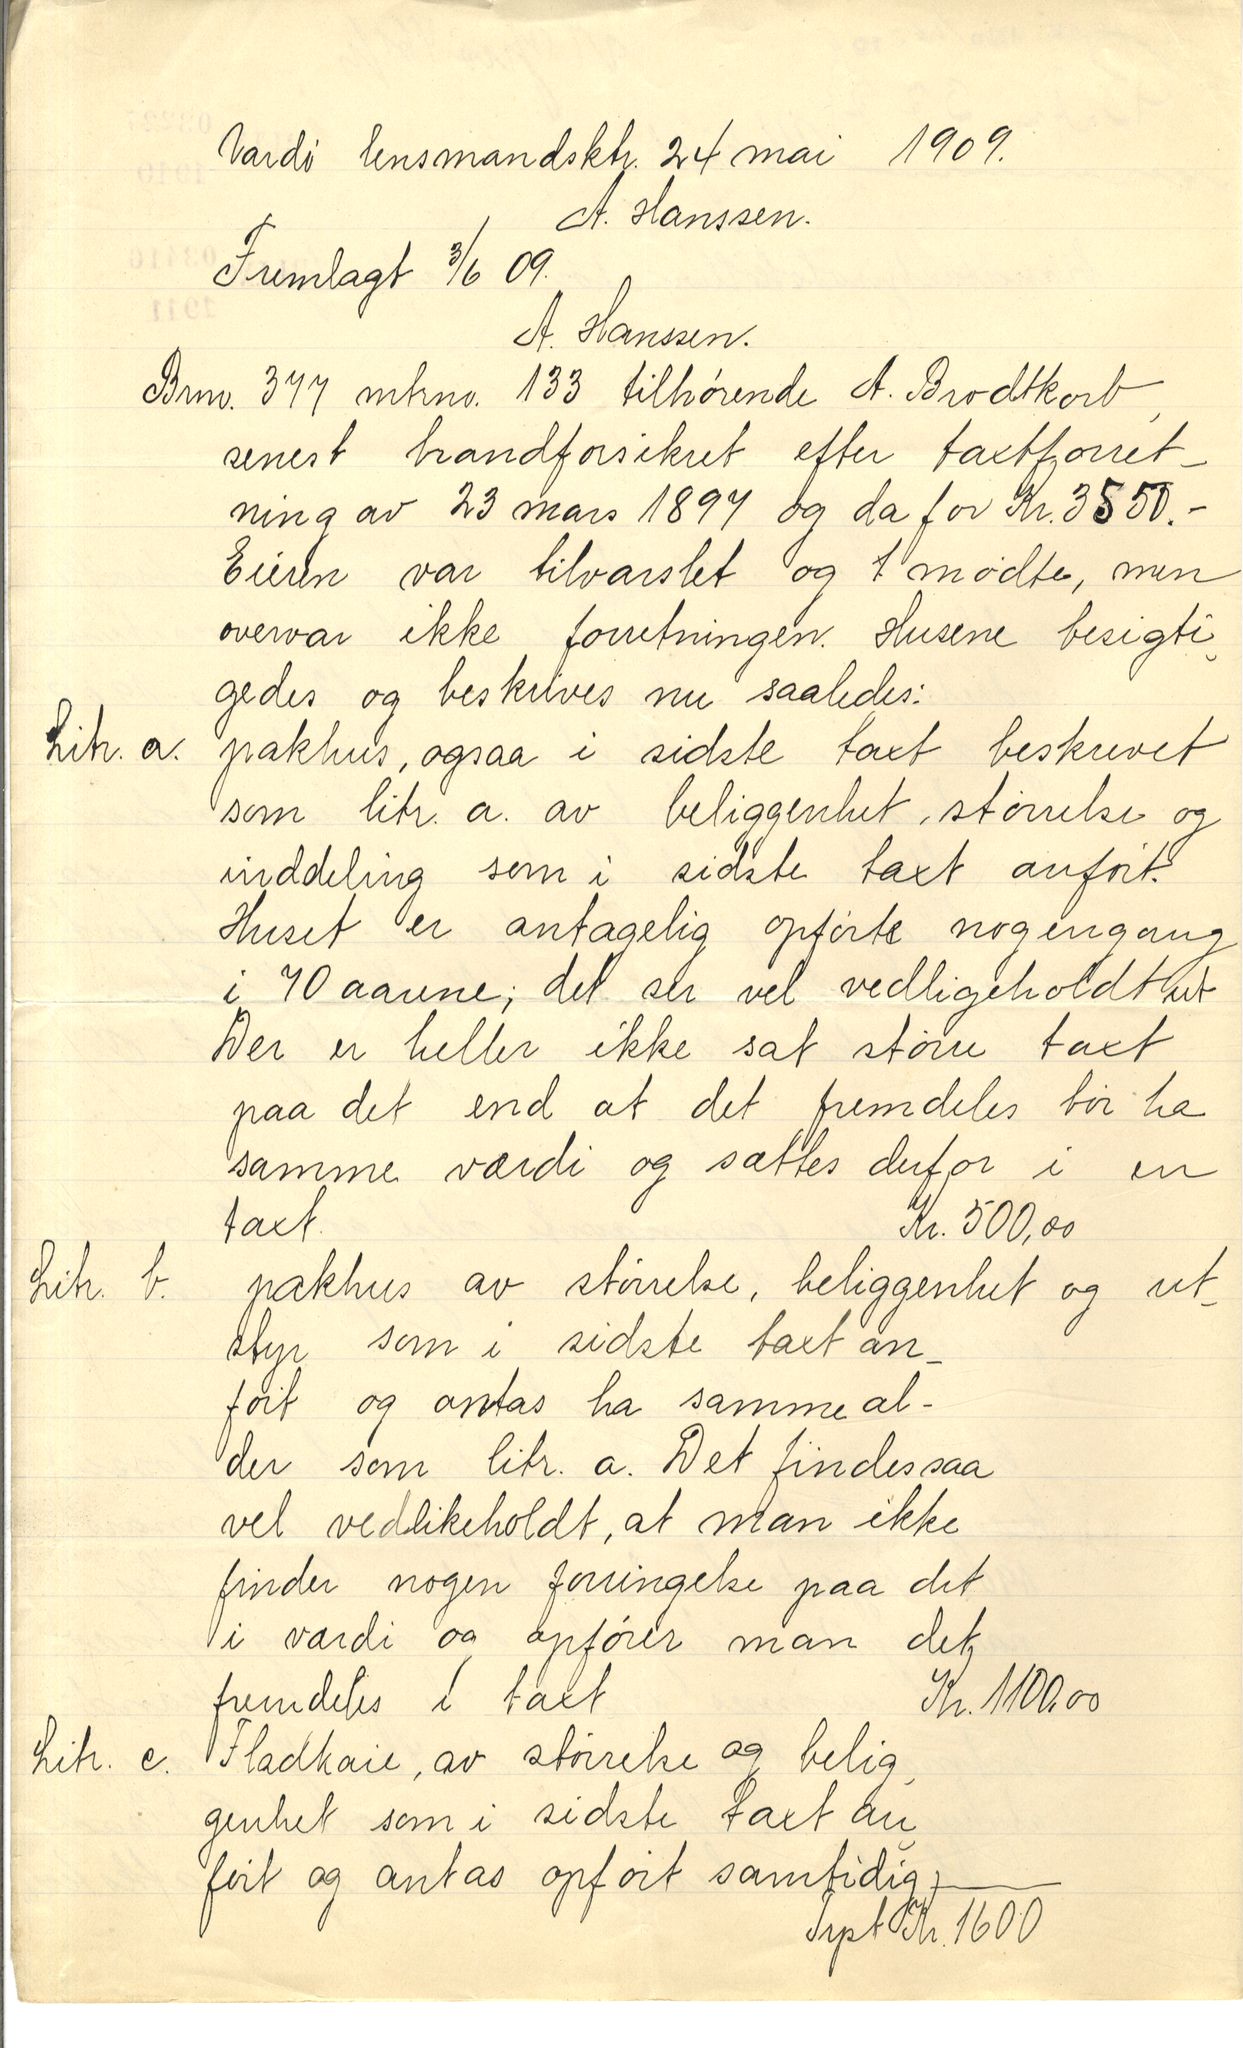 Vardø lensmandsktr. 24 mai 1909.
A. Hanssen.
Fremlagt 3/6 09.
A. Hanssen.
Brno. 377 mtrno. 133 tilhørende A. Brodtkorb,
senest brandforsikret efter taxtforret-
ning av 23 mars 1897 og da for Kr. 3550.-
Eieren var tilvarslet og mødte, men
overvar ikke forretningen. Husene besigti-
gedes og beskrives nu saaledes:
Litr. a. pakhus, ogsaa i sidste taxt beskrevet
som litr. a. av beliggenhet, størrelse og
inddeling som i sidste taxt anført.
Huset er antagelig opførte nogengang
i 70 aarene; det ser vel vedligeholdt ut
Der er heller ikke sat større taxt
paa det end at det fremdeles bør ha
samme værdi og sættes derfor i en
taxt. Kr. 500,00
Litr. b. pakhus av størrelse, beliggenhet og ut-
styr som i sidste taxt an-
ført og antas ha samme al-
der som litr. a. Det findes saa
vel vedlikeholdt, at man ikke
finder nogen forringelse paa det
i værdi og opfører man det
fremdeles i taxt Kr. 1100,00
Litr. c. Fladkaie, av størrelse og belig-
genhet som i sidste taxt an-
ført og antas opført samtidig
Trpt Kr. 1600